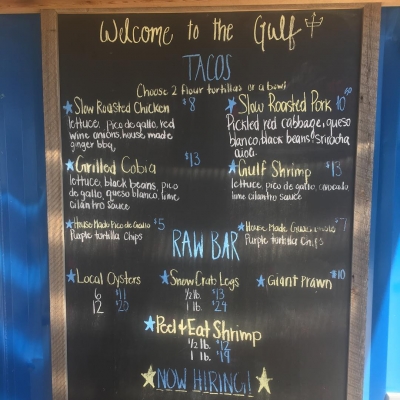 Welcome to the Gulf
TACOS
Choose 2 flour tortillas or a bowl
Slow Roasted Chicken $8
lettuce, pico de gallo, red
wine onions, house made
ginger bbq
Slow Roasted Pork 10
Pickled red cabbage, queso
blanco, black beans, sriracha
aioli
Grilled Cobia $13
lettuce, black beans, pico
de gallo, queso blanco, lime
cilantro sauce
Gulf Shrimp $13
lettuce pico de gallo, avocado
lime cilantro sauce
House Made Pico de Gallo $5
Purple tortilla Chips
House Made Guacamole $7
Purple tortilla Chips
RAW BAR
Local Oysters
6 $11
12 $20
Snow Crab Legs
1/2 lb. $13
1 lb. $24
Giant Prawn $10
Peel & Eat Shrimp
1/2 lb. $12
1 lb. $19
NOW HIRING!